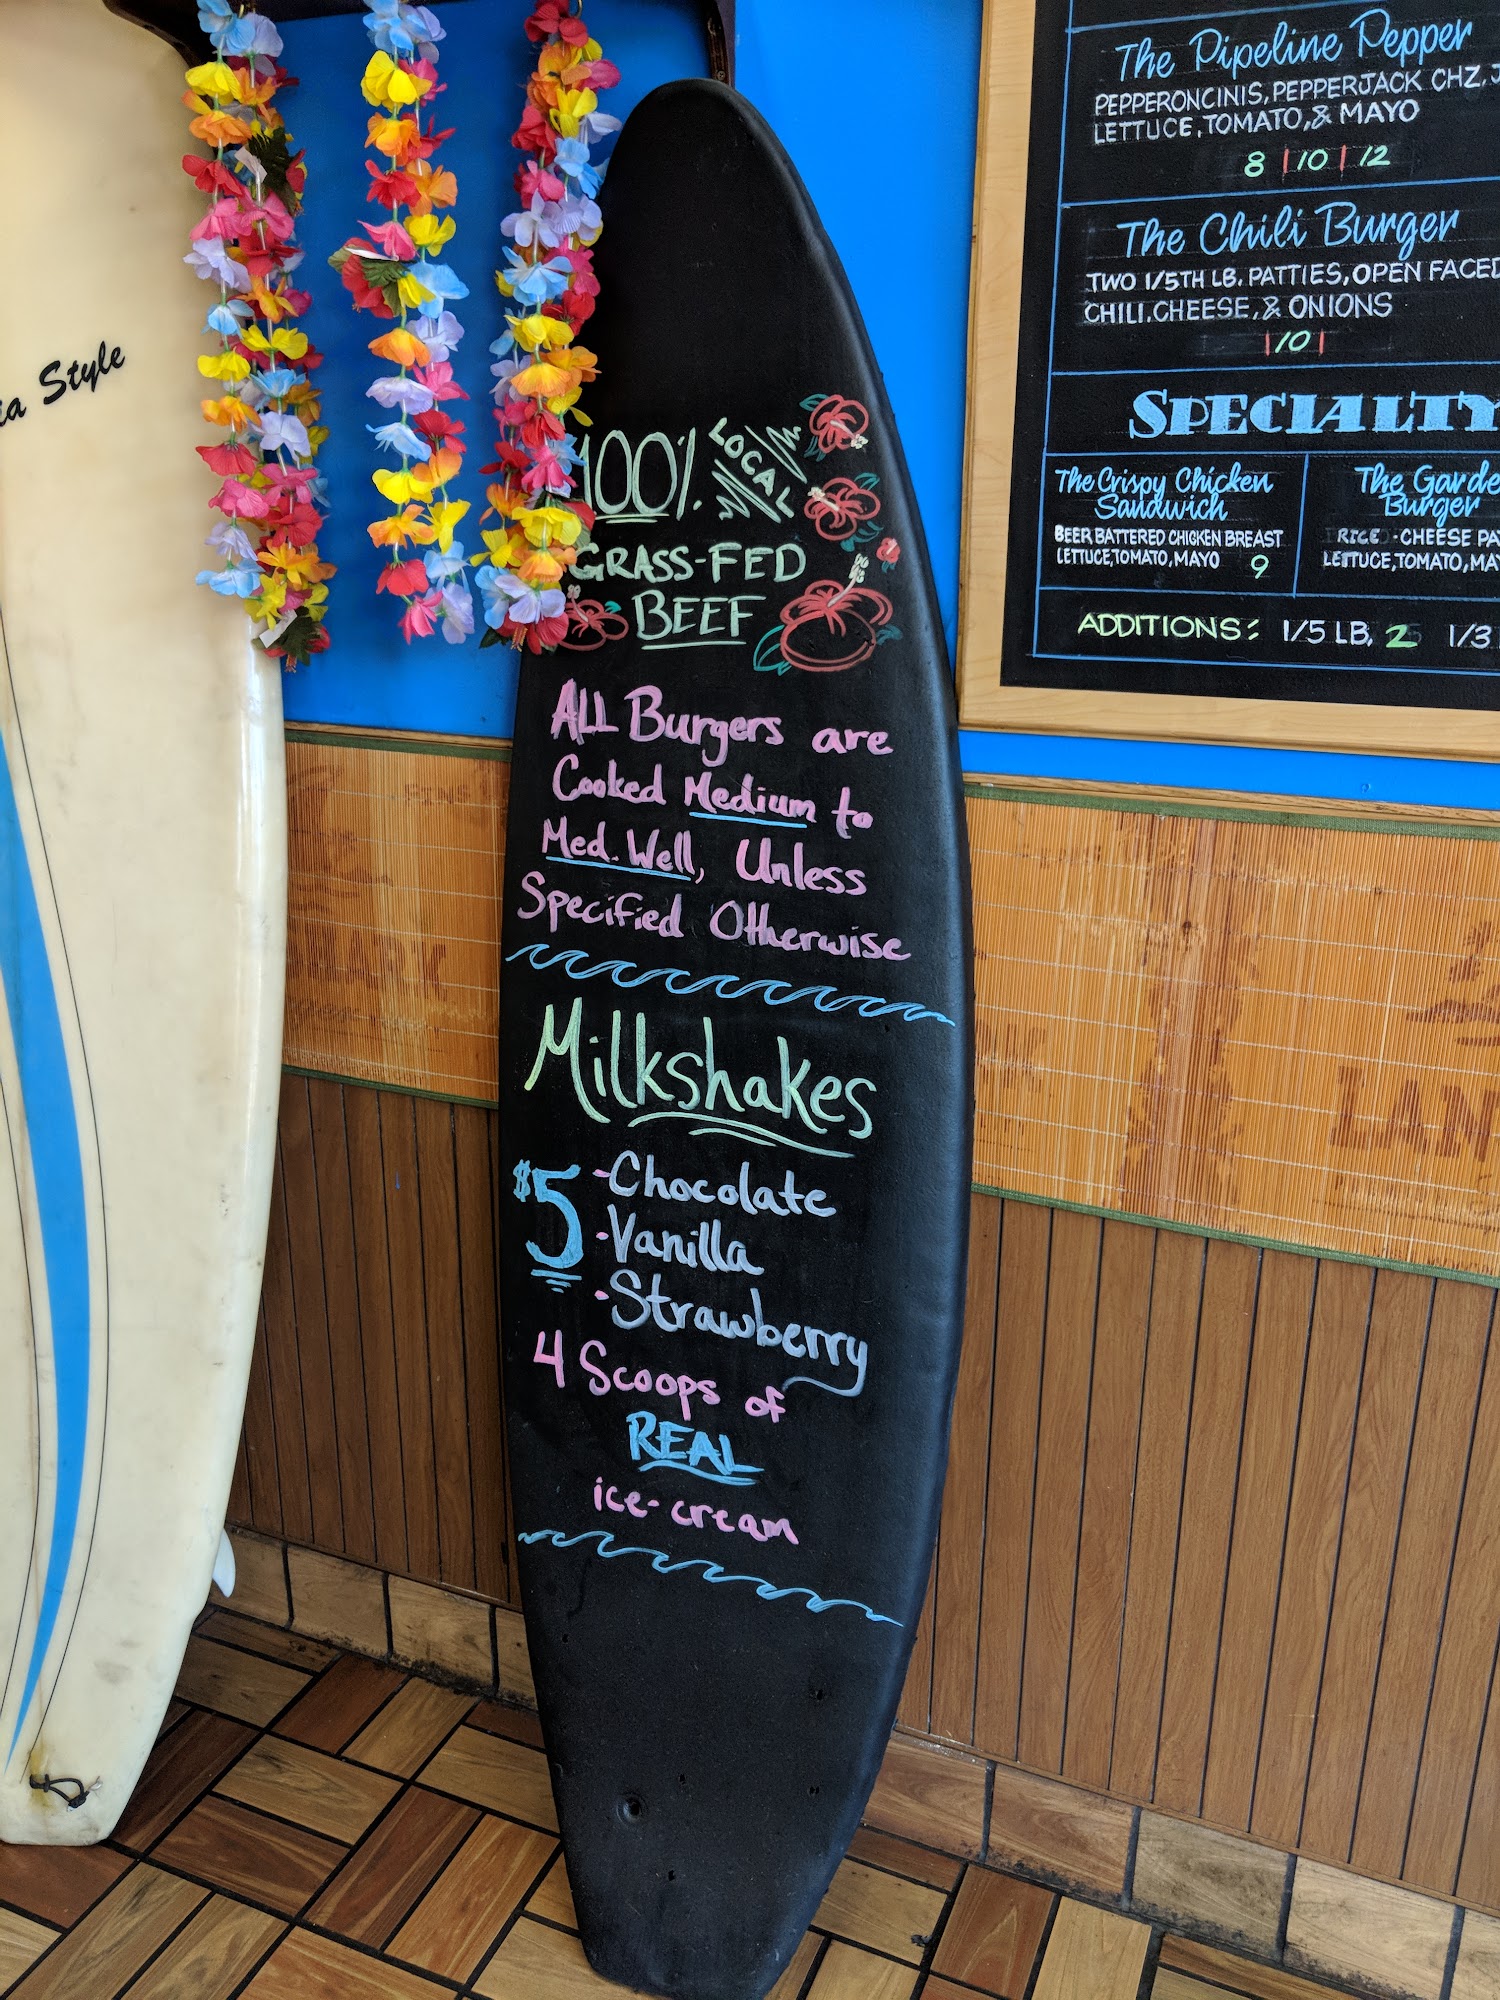 Style
100%
LOCAL
GRASS-FED
BEEF
ALL Burgers are
Cooked Medium to
Med. Well, Unless
Specified Otherwise
Milkshakes
$5
-Chocolate
-Vanilla
-Strawberry
4 Scoops of
REAL
ice-cream
The Pipeline Pepper
PEPPERONCINIS, PEPPERJACK CHZ,
LETTUCE, TOMATO, & MAYO
8 | 10 | 12
The Chili Burger
TWO 1/5TH LB. PATTIES, OPEN FACED
CHILI, CHEESE, & ONIONS
|10|
SPECIALTY
The Crispy Chicken
Sandwich
BEER BATTERED CHICKEN BREAST
LETTUCE, TOMATO, MAYO 9
The
Burger
RICE - CHEESE
LETTUCE, TOMATO,
ADDITIONS: 1/5 LB, 2 1/3